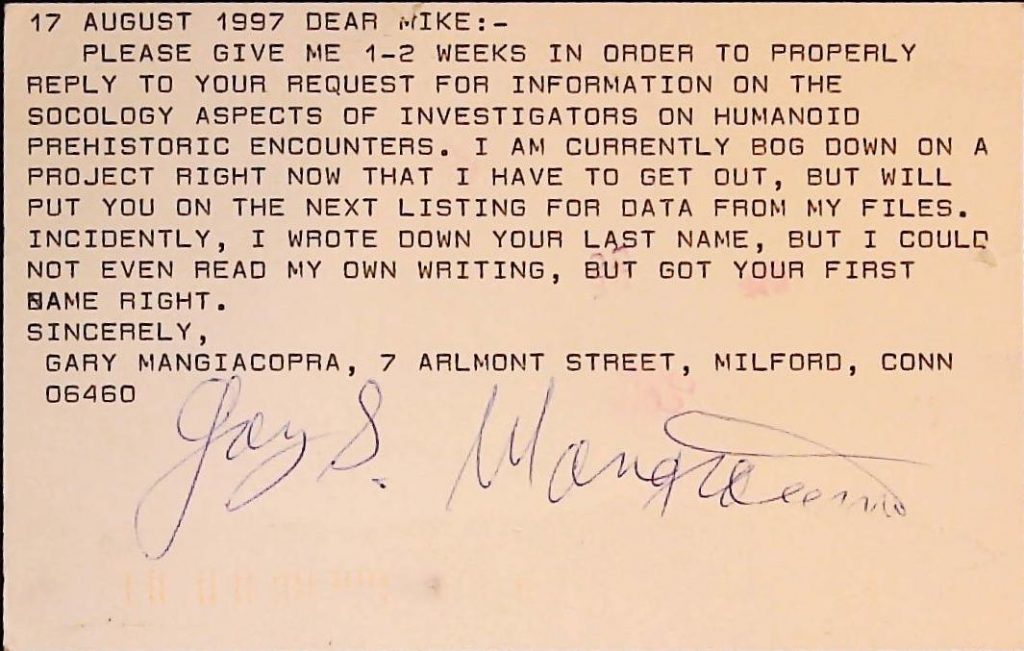 17 AUGUST 1997 DEAR MIKE:-
PLEASE GIVE ME 1-2 WEEKS IN ORDER TO PROPERLY
REPLY TO YOUR REQUEST FOR INFORMATION ON THE
SOCOLOGY ASPECTS OF INVESTIGATORS ON HUMANOID
PREHISTORIC ENCOUNTERS. I AM CURRENTLY BOG DOWN ON A
PROJECT RIGHT NOW THAT I HAVE TO GET OUT, BUT WILL
PUT YOU ON THE NEXT LISTING FOR DATA FROM MY FILES.
INCIDENTLY, I WROTE DOWN YOUR LAST NAME, BUT I COULD
NOT EVEN READ MY OWN WRITING, BUT GOT YOUR FIRST
NAME RIGHT.
SINCERELY,
GARY MANGIACOPRA, 7 ARLMONT STREET, MILFORD, CONN
06460
Gary S. Mangiacopra